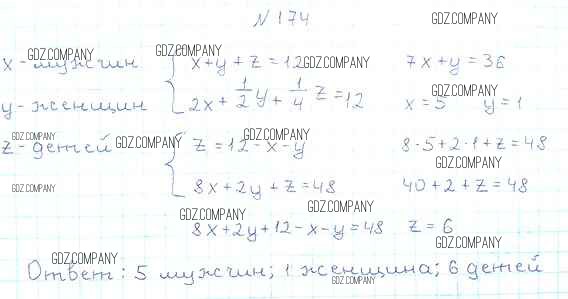 N 174
GDZ.COMPANY
GDZ.COMPANY GDZ.COMPANY
x - мужчин { x + y + z = 12 GDZ.COMPANY 7x + y = 36
y - женщин 2x + 1/2 y + 1/4 z = 12 GDZ.COMPANY x = 5 y = 1
GDZ.COMPANY GDZ.COMPANY GDZ.COMPANY
z - детей { z = 12 - x - y 8·5 + 2·1 + z = 48
GDZ.COMPANY GDZ.COMPANY
8x + 2y + z = 48 40 + 2 + z = 48
GDZ.COMPANY GDZ.COMPANY
8x + 2y + 12 - x - y = 48 z = 6
GDZ.COMPANY GDZ.COMPANY
Ответ: 5 мужчин; 1 женщина; 6 детей
GDZ.COMPANY